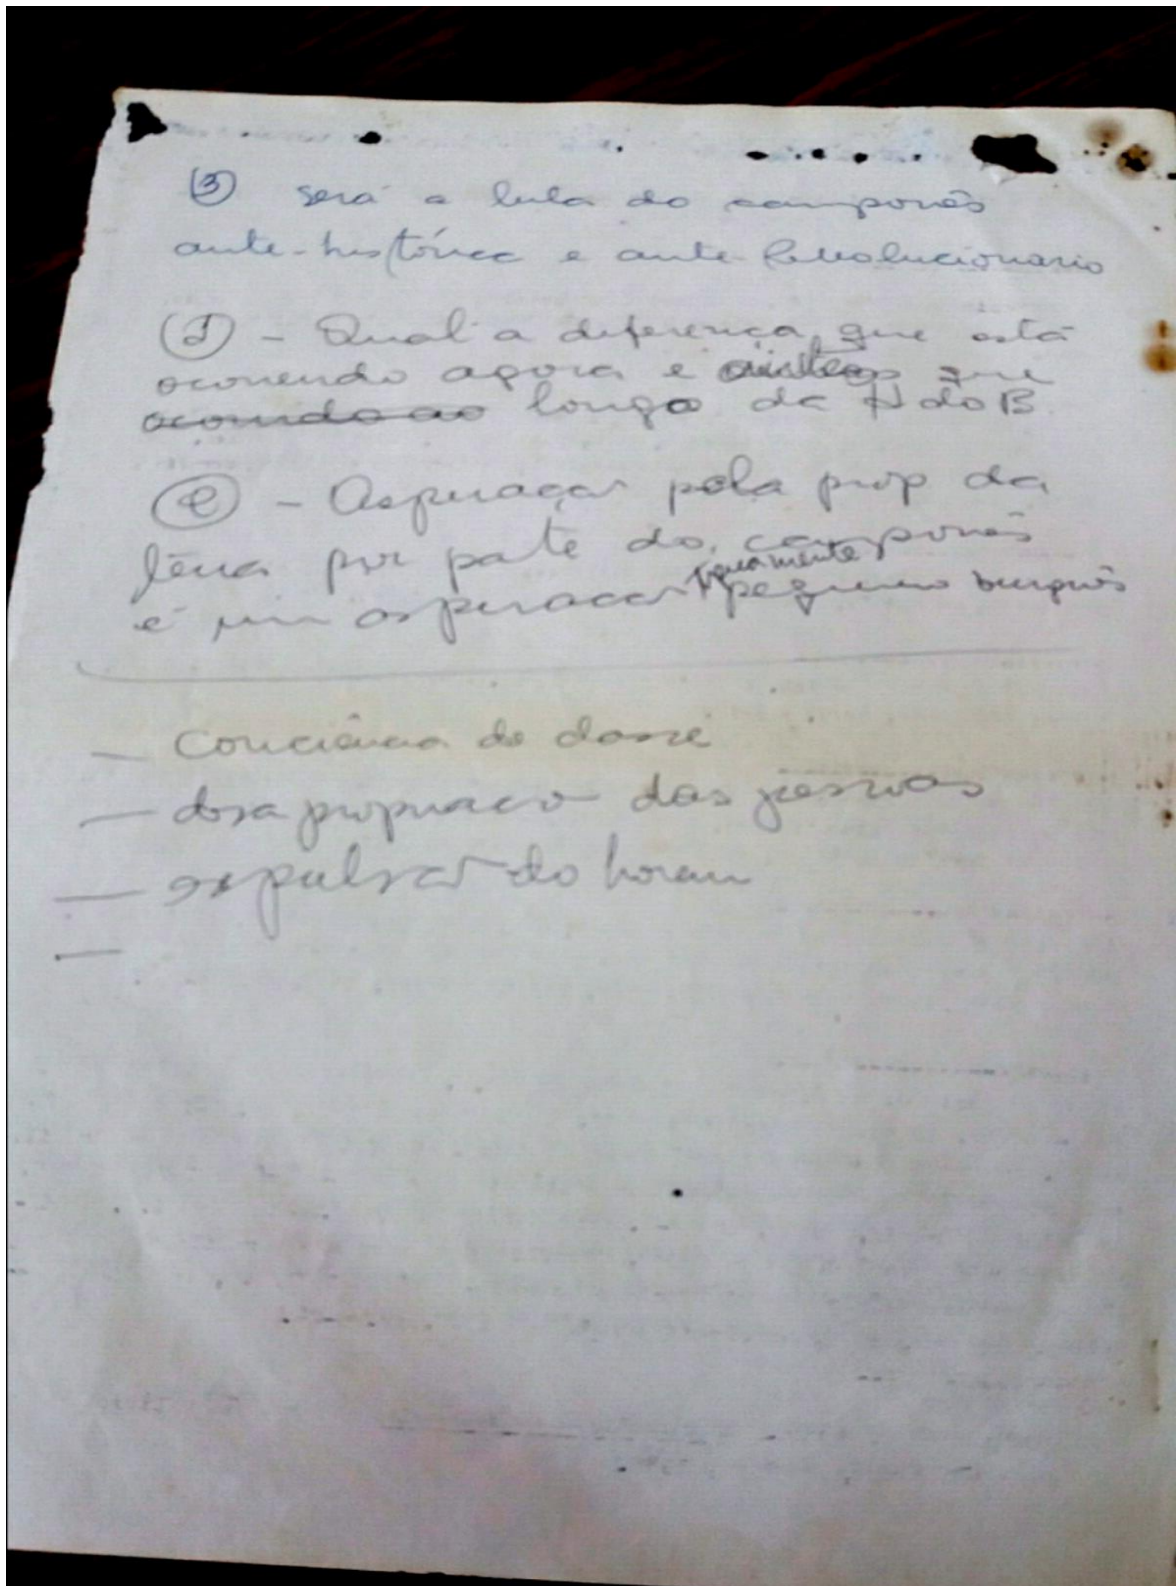 ③ será a luta do camponês
ante-histórica e ante-Revolucionario
ⓓ - Qual a diferença que está
ocorrendo agora e que
longo da H do B
ⓔ - Aspiração pela prop da
terra por parte do camponês
é um aspiração pequeno burguês
— Conciência de classe
— desapropriaco das pessoas
— expulsão do homem
—